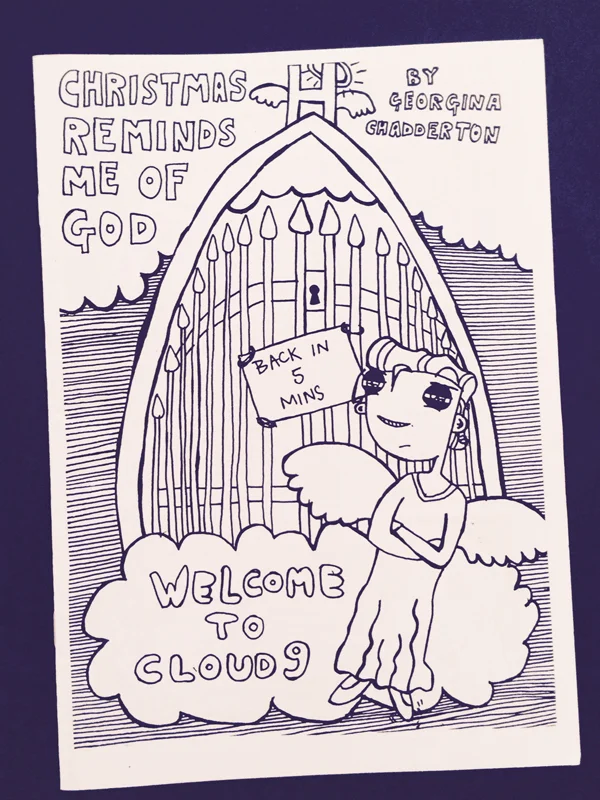 CHRISTMAS
REMINDS
ME OF
GOD
BY
GEORGINA
CHADDERTON
H
BACK IN
5
MINS
WELCOME
TO
CLOUD 9